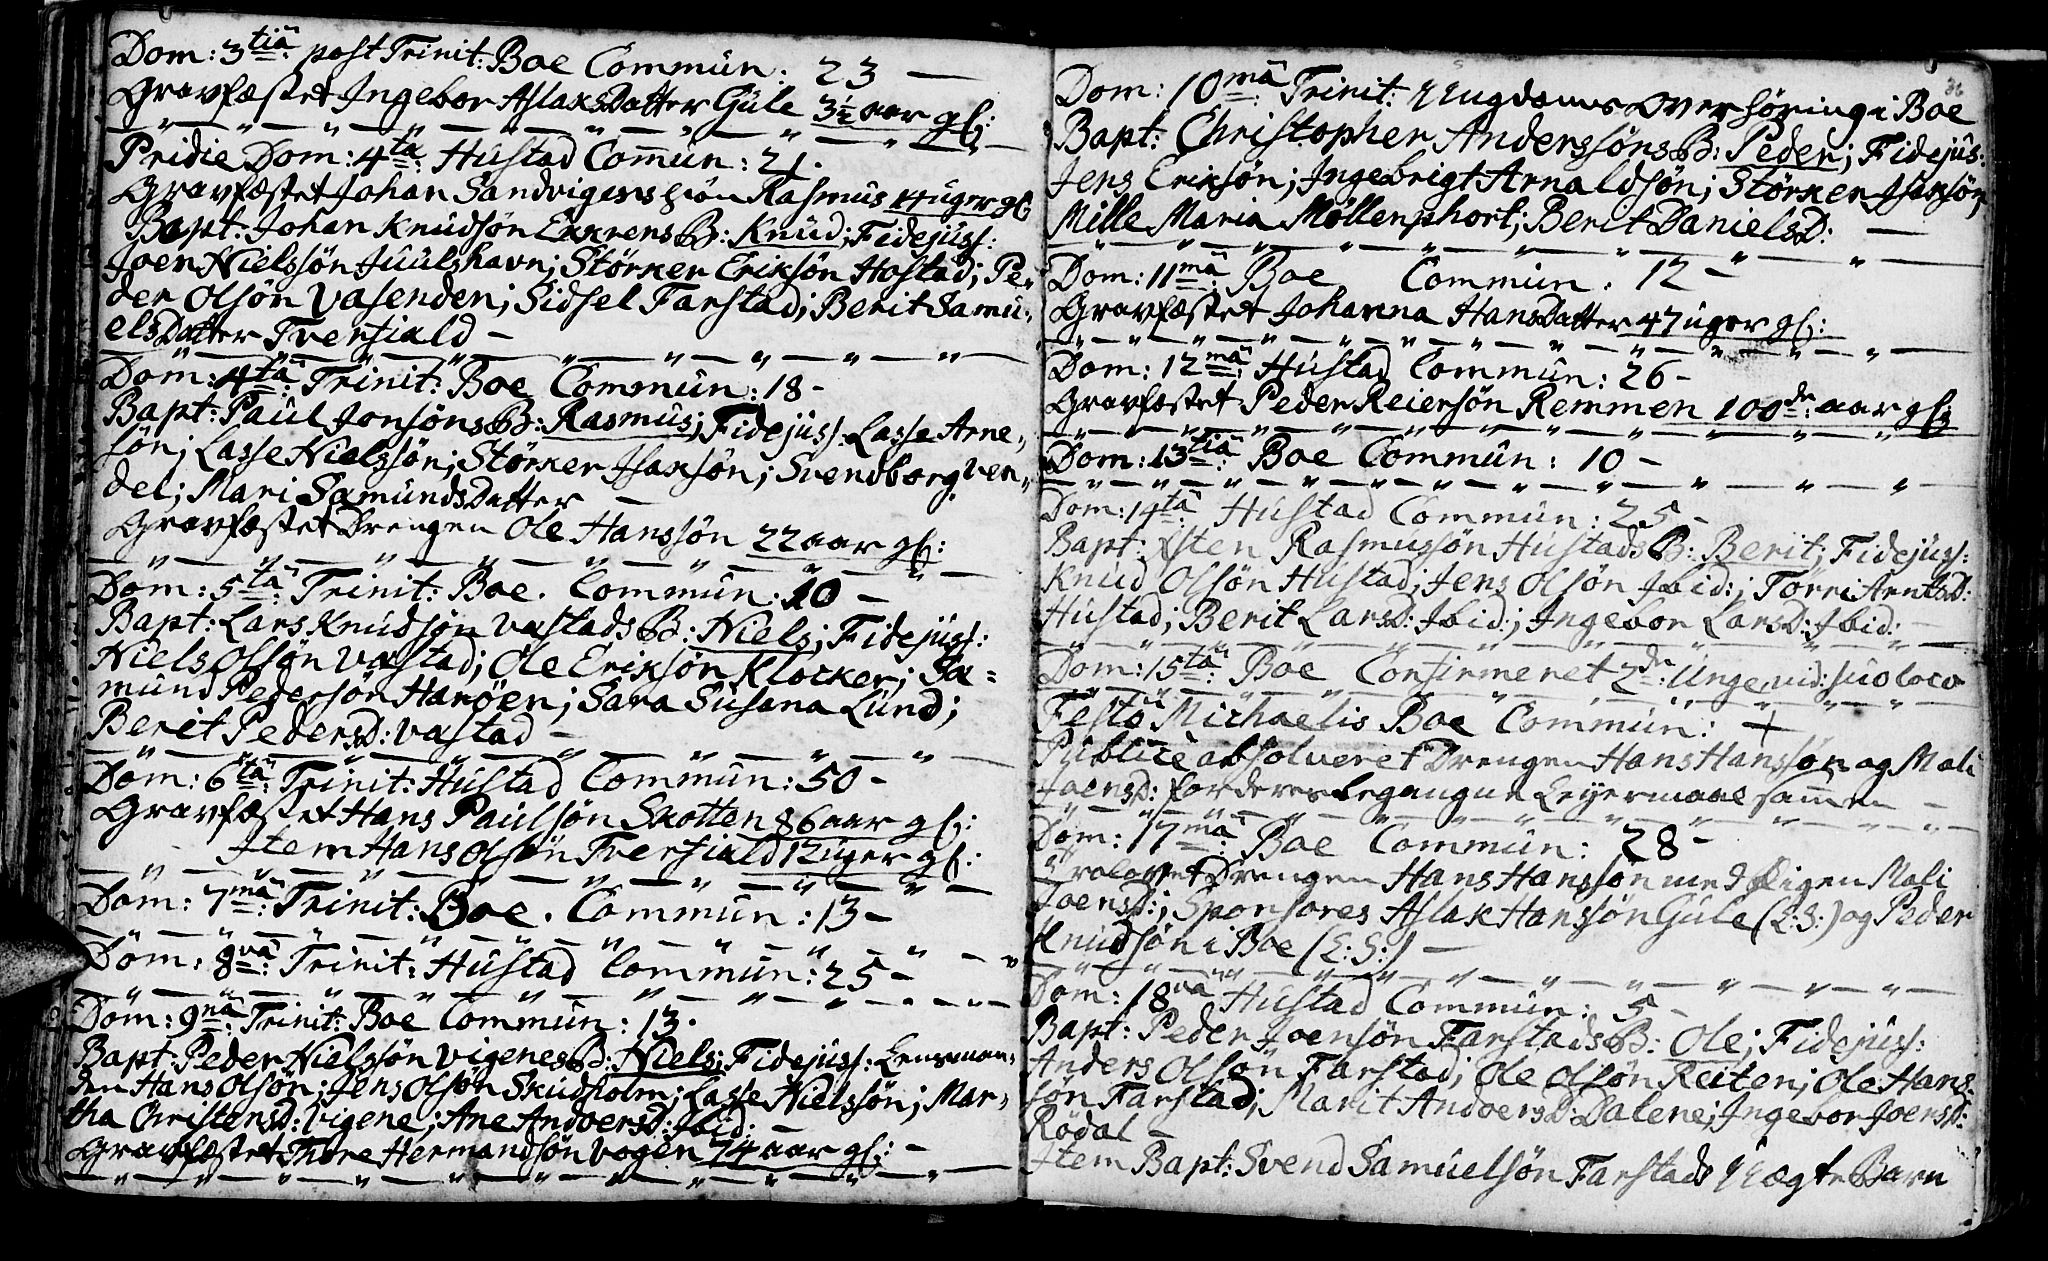 Dom: 3tiâ: post Trinit: Boe Commûn: 23 —
Gravfæstet Ingebor AslaksDatter Gûle 3½ aar gl:
Pridie Dom: 4tâ: Hûstad Com̄ûn: 21.
Gravfæstet Johan Sandvigens søn Rasmus 14 uger gl:
Bapt: Johan Knûdsøn Ekrens B: Knûd; Fidejûss:
Joen Nielssøn Jûûlshavn; Størker Eriksøn Hostad; Pe-
der Olsøn Vasenden; Sidsel Farstad; Berit Samû-
elsDatter Tverfiald —
Dom: 4tâ: Trinit: Boe Commûn: 18 -
Bapt: Paûl Jonsøns B: Rasmûs; Fidejûss: Lasse Arne-
søn; Lasse Nielssøn; Størker Isaksøn; Svendborg Ven-
del; Mari SamûndsDatter —
Gravfæstet Drengen Ole Hanssøn 22 aar gl:
Dom: 5tâ: Trinit: Boe. Commûn: 10 —
Bapt: Lars Knûdsøn Vastads B: Niels; Fidejûss:
Niels Olsøn Vastad; Ole Eriksøn Klocker; Sa=
mûnd Pedersøn Harøen; Sara Sûsana Lûnd;
Berit PedersD: Vastad —
Dom: 6tâ: Trinit: Hûstad Commûn: 50 -
Gravfæstet Hans Paûlsøn Skotten 86 aar gl:
Item Hans Olsøn Tverfiald 12 ûger gl:
Dom: 7mâ: Trinit: Boe. Commûn: 13 —
Dom: 8vâ: Trinit: Hûstad Commûn: 25 —
Dom: 9nâ: Trinit: Boe Commûn: 13.
Bapt: Peder Nielssøn Vigenes B: Niels; Fidejûss: Lensman-
den Hans Olsøn; Jens Olsøn Skûdholm; Lasse Nielssøn; Mar-
tha ChristensD: Vigene; Ane AndversD: Ibid: —
Gravfæstet Thore Hermandsøn Vogen 74 aar gl: —
36
Dom: 10mâ: Trinit: Ungdoms Overhøring i Boe
Bapt: Christopher Anderssøns B: Peder; Fidejûs:
Jens Eriksøn; Ingebrigt Arnaldsøn; Størker Isaksøn;
Mille Maria Møllenphort; Berit DanielsD: —
Dom: 11mâ: Boe Commûn: 12 —
Gravfæstet Johanna HansDatter 47 ûger gl:
Dom: 12mâ: Hûstad Commûn: 26 -
Gravfæstet Peder Reiersøn Remmen 100de: aar gl:
Dom: 13tiâ: Boe Commûn: 10 —
Dom: 14tâ: Hûstad Commûn: 25 -
Bapt: Østen Rasmussøn Hûstads B: Berit; Fidejûss:
Knûd Olsøn Hûstad; Jens Olsøn Ibid:; Torri ArntsD:
Hûstad; Berit LarsD: Ibid:; Ingebor LarsD: Ibid: —
Dom: 15tâ: Boe Confirmeret 2de: Unge, vid: sûo loco
Festo Michaelis Boe Commûn: +
Pûblice absolveret Drengen Hans Hanssøn og Mali
JoensD: for deres begangne Leyermaal sam̄en —
Dom: 17mâ: Boe Commûn: 28 —
Trolovet Drengen Hans Hanssøn med Pigen Mali
JoensD:; Sponsores Aslak Hanssøn Gûle (L: S:) og Peder
Knûdsøn i Boe (L: S:) —
Dom: 18vâ: Hûstad Commûn: 5 —
Bapt: Peder Joensøn Farstads B: Ole; Fidejûss:
Anders Olsøn Farstad; Ole Olsøn Reiten; Ole Hans
søn Farstad; Marit AndversD: Dalene; Ingebor JoensD:
Rødal —
Item Bapt: Svend Samûelsøn Farstads Uægte Barn